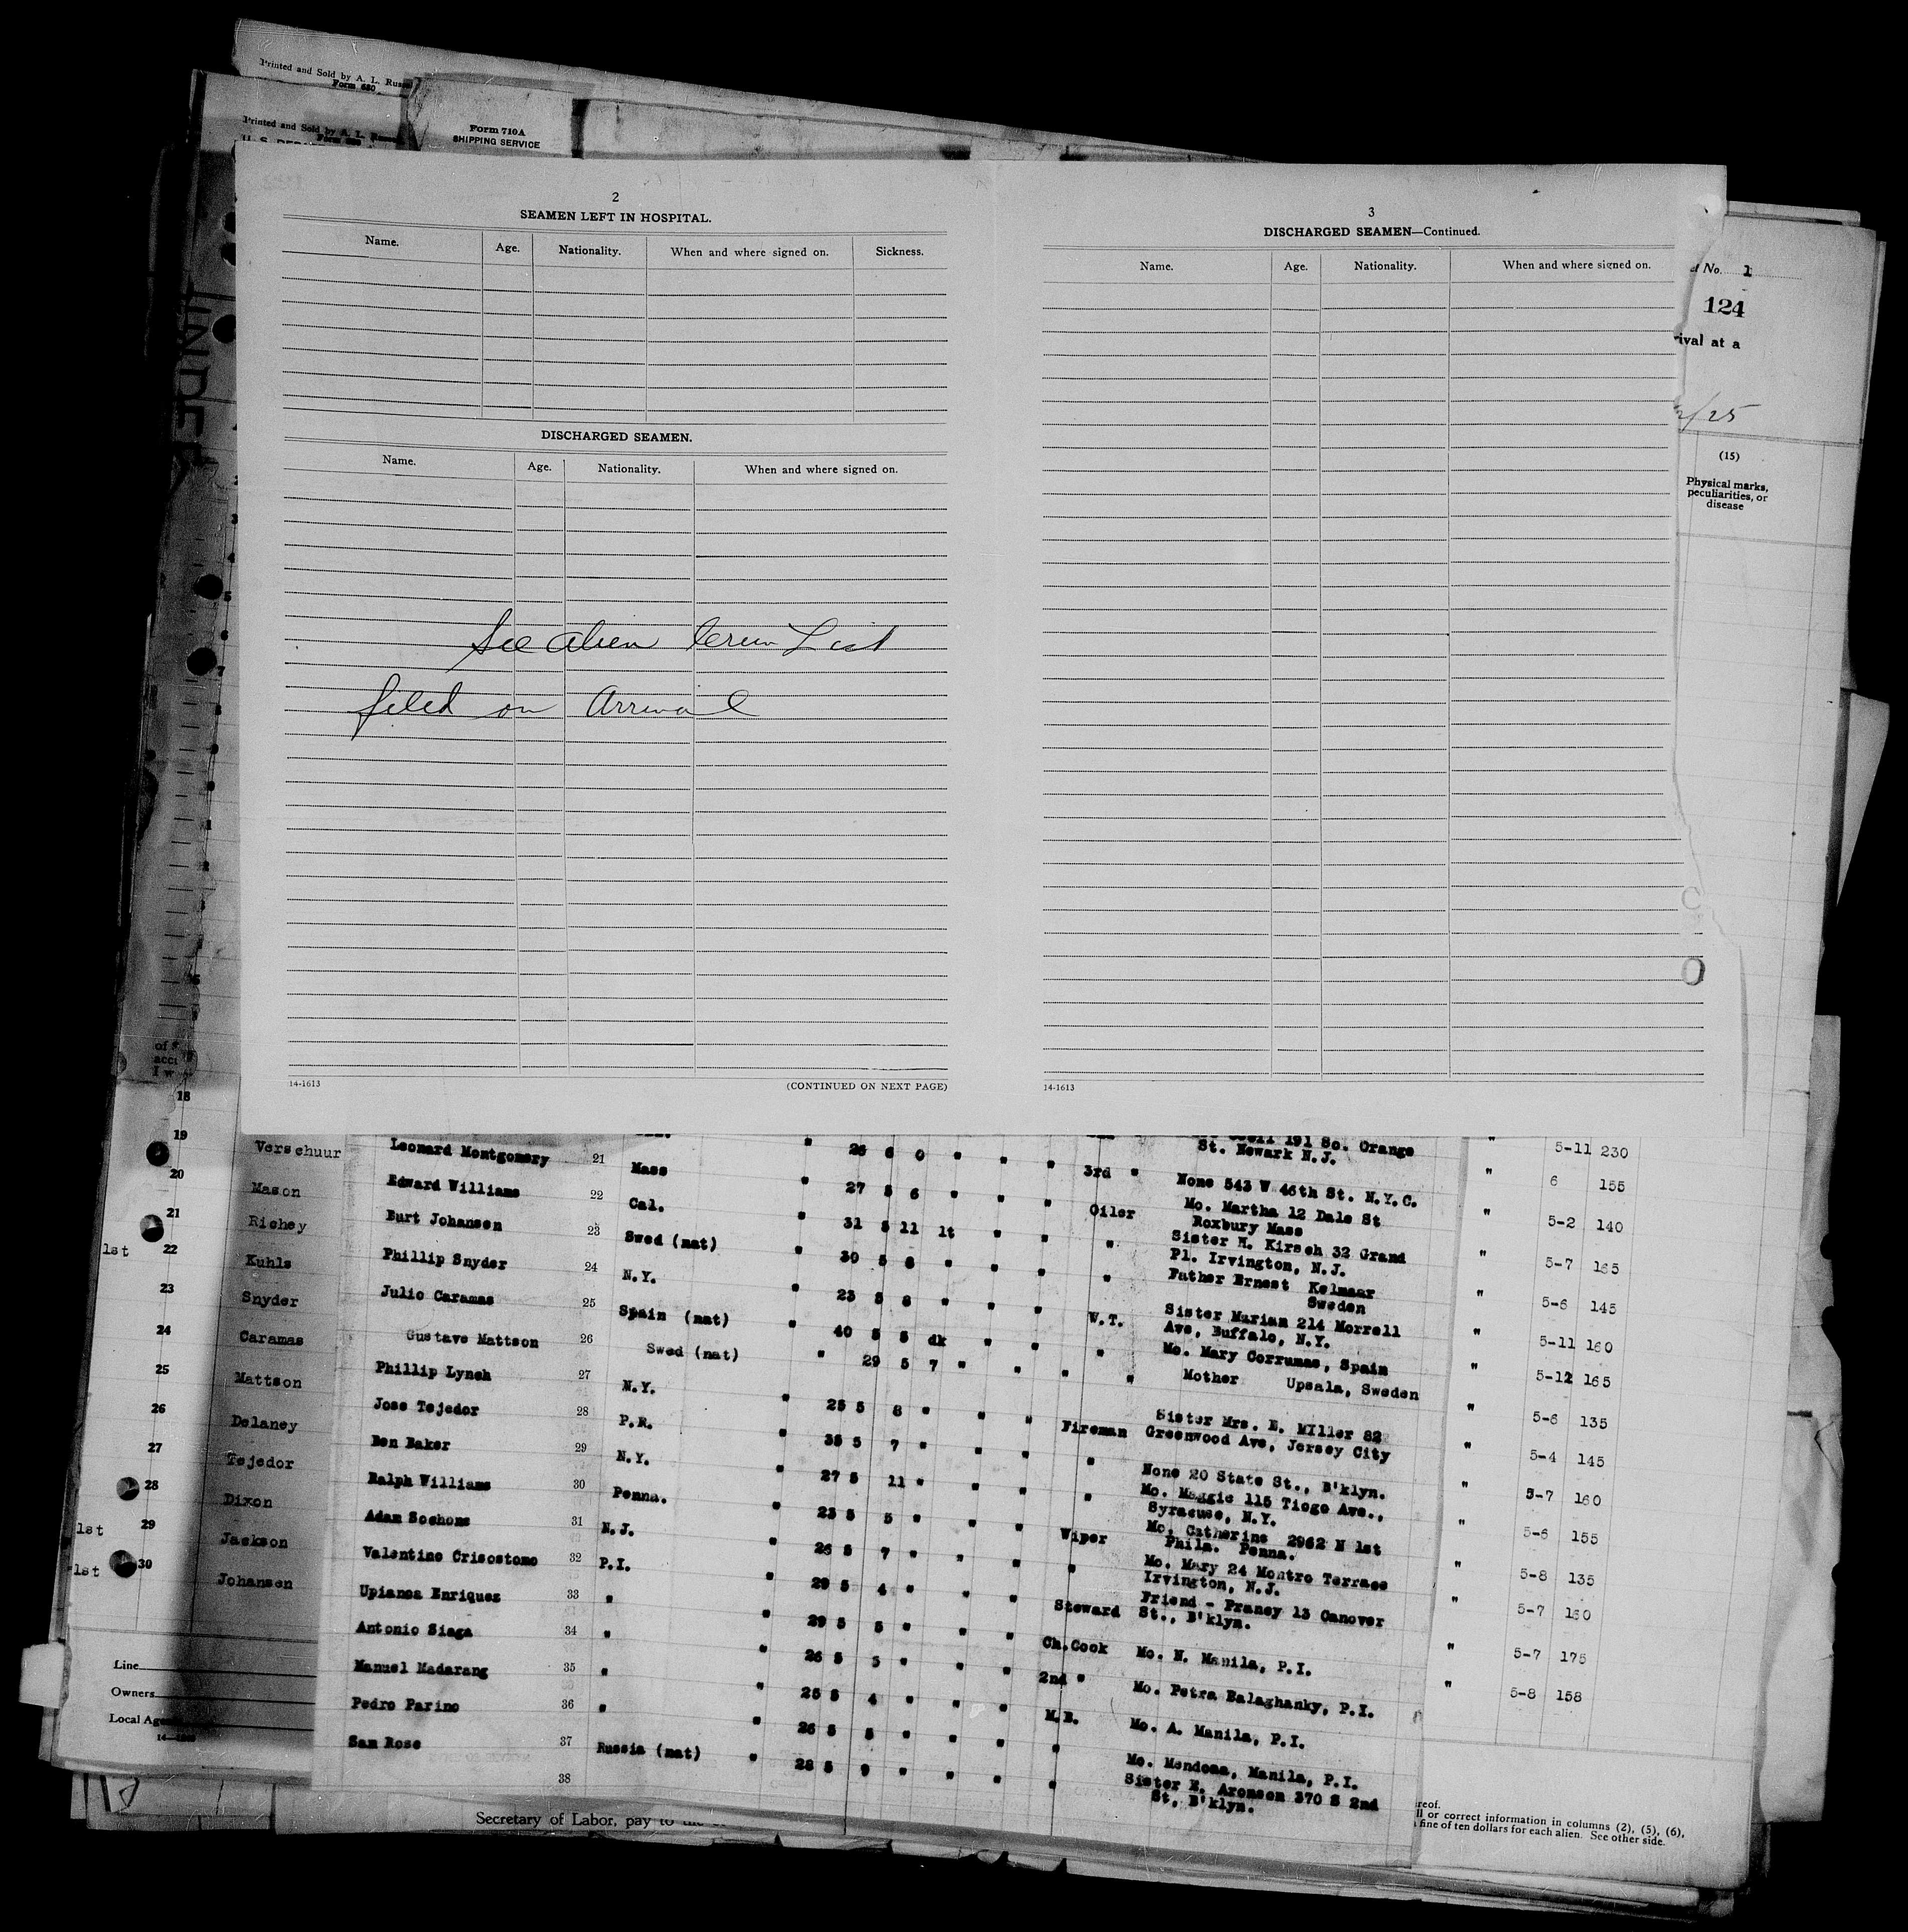 Printed and Sold by A. L.
Form 680
Printed and Sold by A. L.
Form 710A
SHIPPING SERVICE
2
SEAMEN LEFT IN HOSPITAL.
Name. Age. Nationality. When and where signed on. Sickness.
DISCHARGED SEAMEN.
Name. Age. Nationality. When and where signed on.
See Alien Crew List
filed on Arrival
14-1613 (CONTINUED ON NEXT PAGE)
3
DISCHARGED SEAMEN—Continued.
Name. Age. Nationality. When and where signed on.
14-1613
No. 1
124
rival at a
/25
(15)
Physical marks,
peculiarities, or
disease
18
19 Verschuur
20 Mason
21 Richey
1st 22 Kuhls
23 Snyder
24 Caramas
25 Mattson
26 Delaney
27 Tejedor
28 Dixon
1st 29 Jackson
1st 30 Johansen
Line
Owners
Local
191 So. Orange
Leonard Montgomery 21 Mass " 26 6 0 " " " 3rd " St. Newark N.J.
Edward Williams 22 Cal. " 27 5 6 " " " Oiler None 543 W 46th St. N.Y.C.
Burt Johansen 23 Swed (nat) " 31 5 11 lt " " " Mo. Martha 12 Dale St
Roxbury Mass
Phillip Snyder 24 N.Y. " 30 5 8 " " " " Sister M. Kirsch 32 Grand
Pl. Irvington, N.J.
Julio Caramas 25 Spain (nat) " 23 5 8 " " " W.T. Father Ernest Kelmaar
Sweden
Gustave Mattson 26 Swed (nat) " 40 5 5 dk " " " Sister Marian 214 Morrell
Ave, Buffalo, N.Y.
Phillip Lynch 27 N.Y. " 29 5 7 " " " " Mo. Mary Corrumas, Spain
Mother Upsala, Sweden
Jose Tejedor 28 P.R. " 25 5 8 " " " Fireman Sister Mrs. E. Miller 82
Greenwood Ave, Jersey City
Ben Baker 29 N.Y. " 35 5 7 " " " " None 20 State St., B'klyn.
Ralph Williams 30 Penna. " 27 5 11 " " " " Mo. Maggie 115 Tioga Ave.,
Syracuse, N.Y.
Adam Sochoms 31 N.J. " 23 5 5 " " " Wiper Mo. Catherine 2962 N 1st
Phila. Penna.
Valentino Crisostomo 32 P.I. " 26 5 7 " " " " Mo. Mary 24 Montro Terrace
Irvington, N.J.
Upianoa Enriquez 33 " " 29 5 4 " " " Steward Friend - Franey 13 Canover
St., B'klyn.
Antonio Siaga 34 " " 29 5 5 " " " Ch.Cook Mo. N. Manila, P.I.
Manuel Madarang 35 " " 26 5 5 " " " 2nd " Mo. Petra Balaghanky, P.I.
Pedro Parino 36 " " 25 5 4 " " " M.B. Mo. A. Manila, P.I.
Sam Rose 37 Russia (nat) " 26 5 5 " " " " Mo. Mendoza, Manila, P.I.
38 28 5 9 " " " " Sister E. Aronson 370 S 2nd
St, B'klyn.
" 5-11 230
" 6 155
" 5-2 140
" 5-7 165
" 5-6 145
" 5-11 160
" 5-12 165
" 5-6 135
" 5-4 145
" 5-7 160
" 5-6 155
" 5-8 135
" 5-7 150
" 5-7 175
" 5-8 158
Secretary of Labor, pay to
reof.
ll or correct information in columns (2), (5), (6),
fine of ten dollars for each alien. See other side.